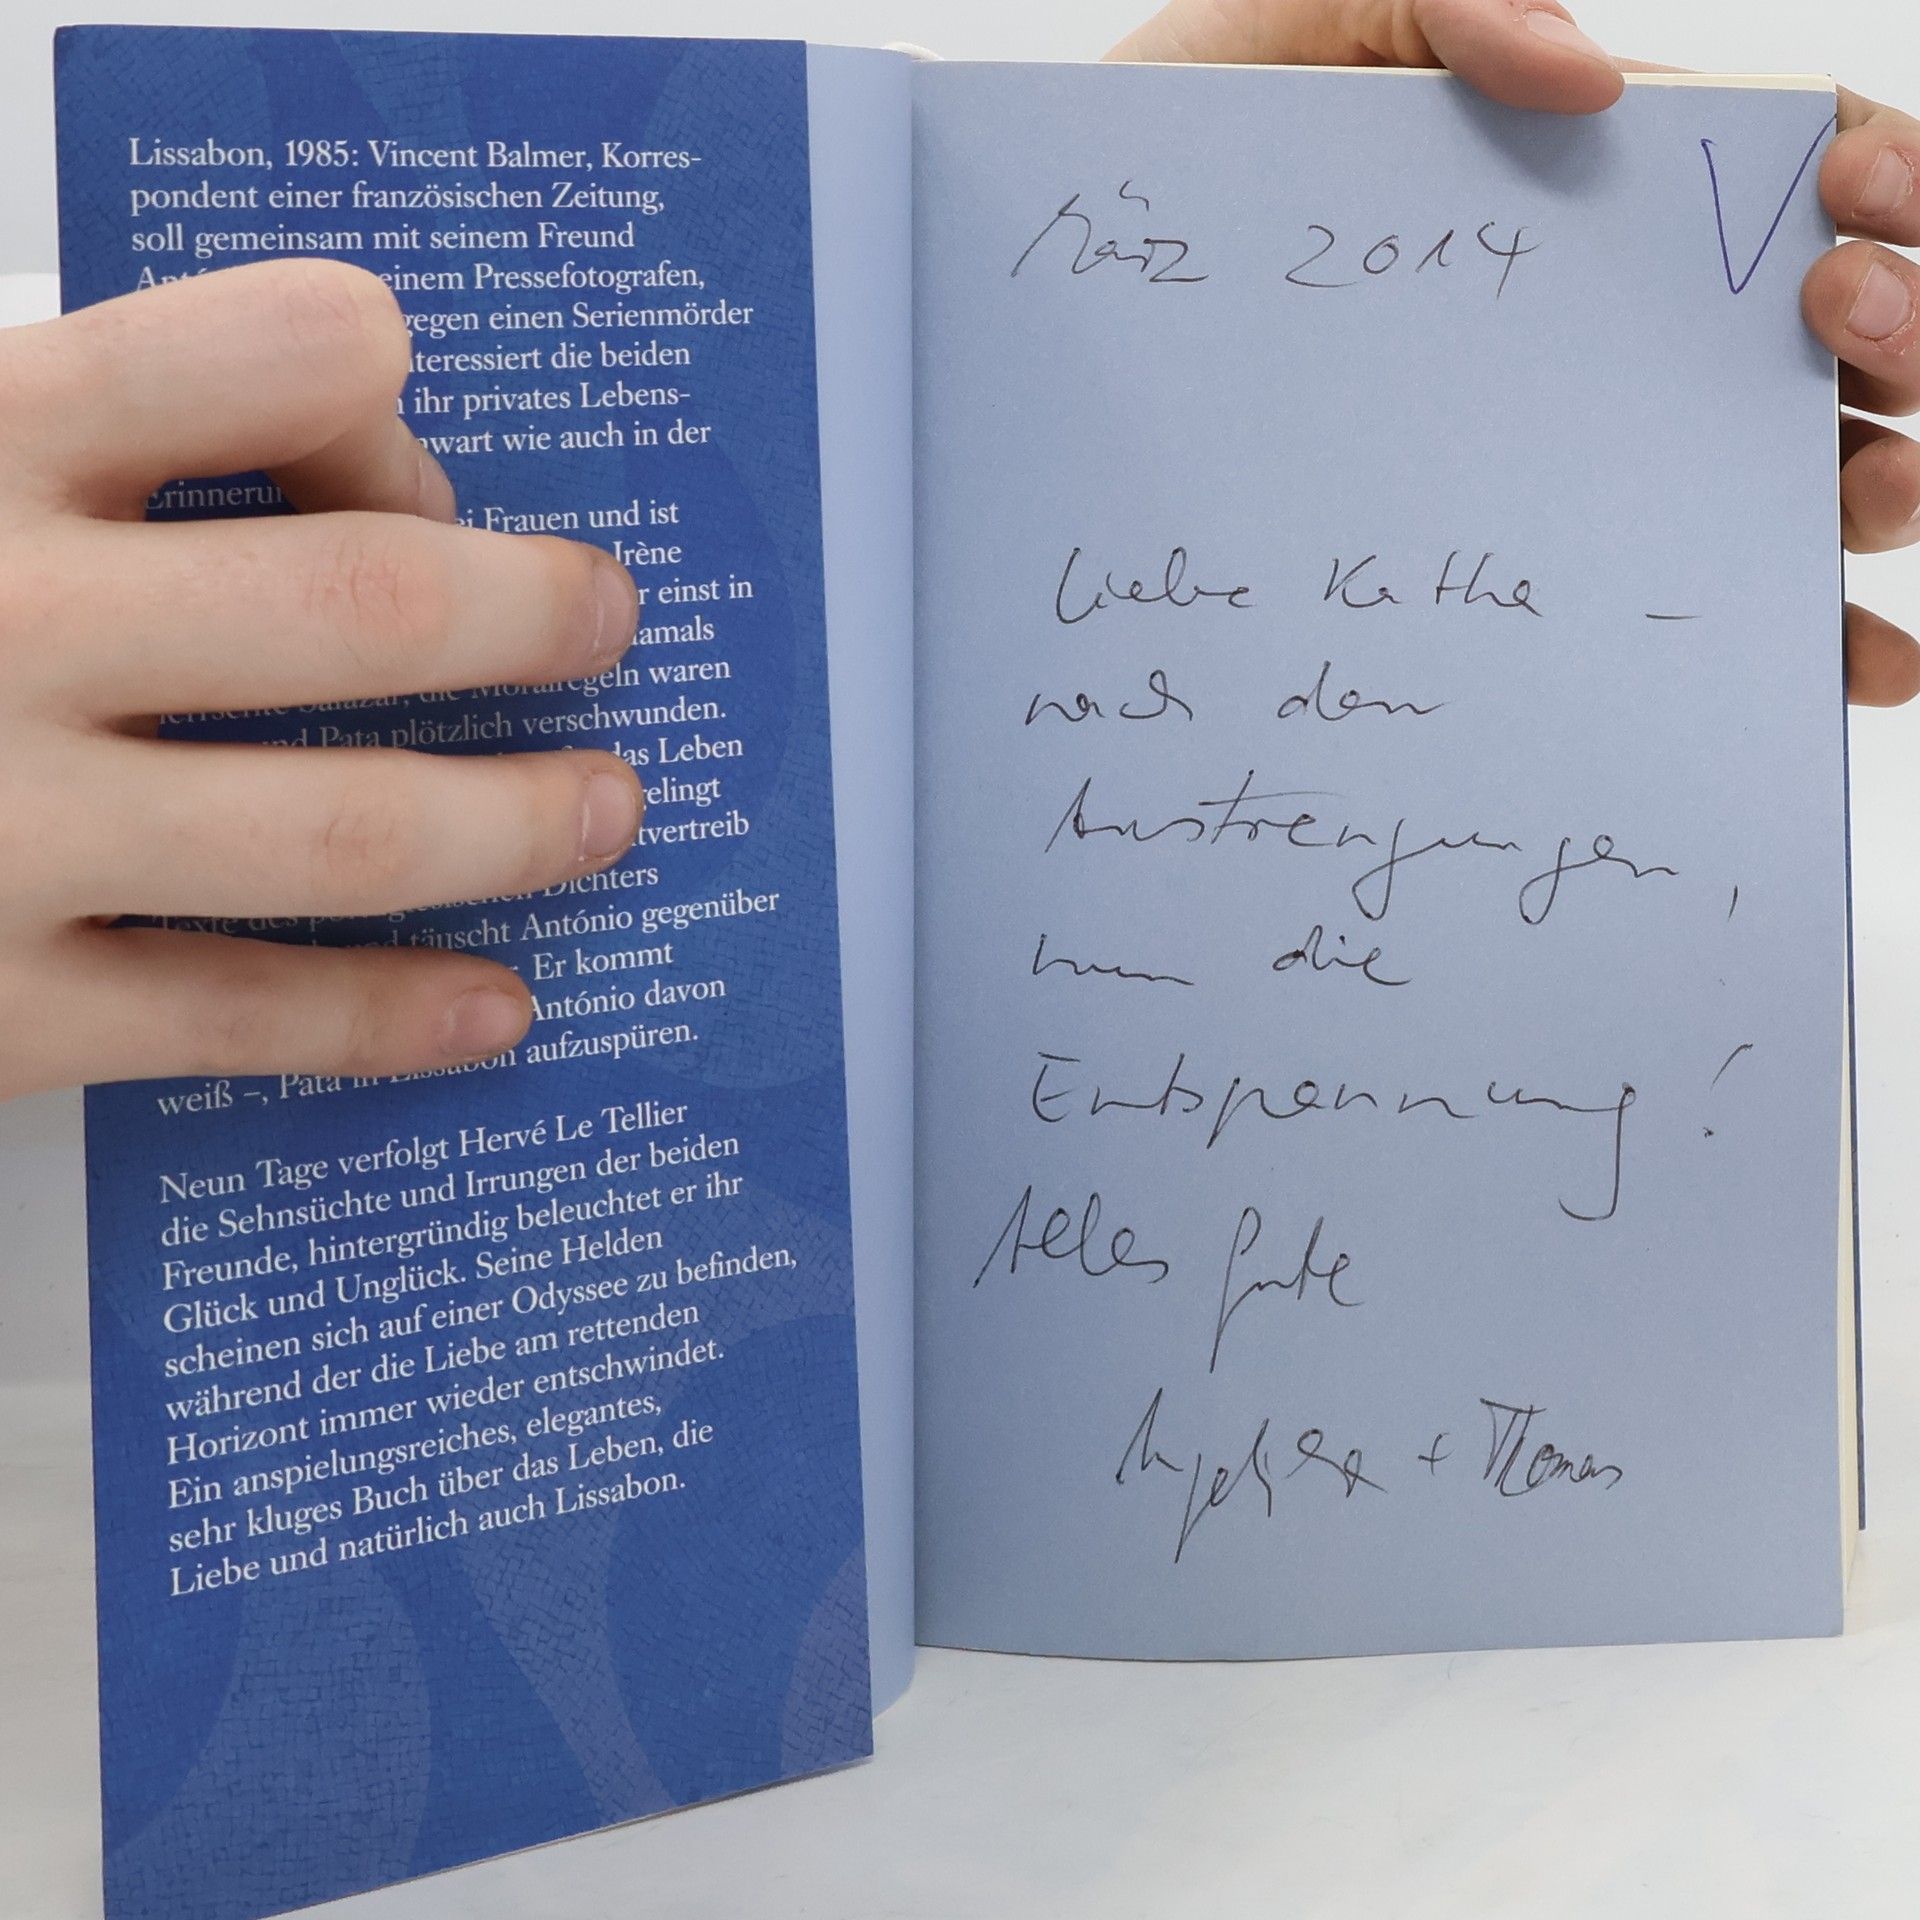 Lissabon, 1985: Vincent Balmer, Korres-
pondent einer französischen Zeitung,
soll gemeinsam mit seinem Freund
einem Pressefotografen,
gegen einen Serienmörder
die beiden
ihr privates Lebens-
wie auch in der
Frauen und ist
Irène
einst in
waren
Pata plötzlich verschwunden.
Leben
Dichters
täuscht António gegenüber
Er kommt
António davon
weiß –, Pata in Lissabon aufzuspüren.
Neun Tage verfolgt Hervé Le Tellier
die Sehnsüchte und Irrungen der beiden
Freunde, hintergründig beleuchtet er ihr
Glück und Unglück. Seine Helden
scheinen sich auf einer Odyssee zu befinden,
während der die Liebe am rettenden
Horizont immer wieder entschwindet.
Ein anspielungsreiches, elegantes,
sehr kluges Buch über das Leben, die
Liebe und natürlich auch Lissabon.
März 2014
V
Liebe Kathe –
nach den
Anstrengungen,
nun die
Entspannung!
Alles Gute
Angelika + Thomas